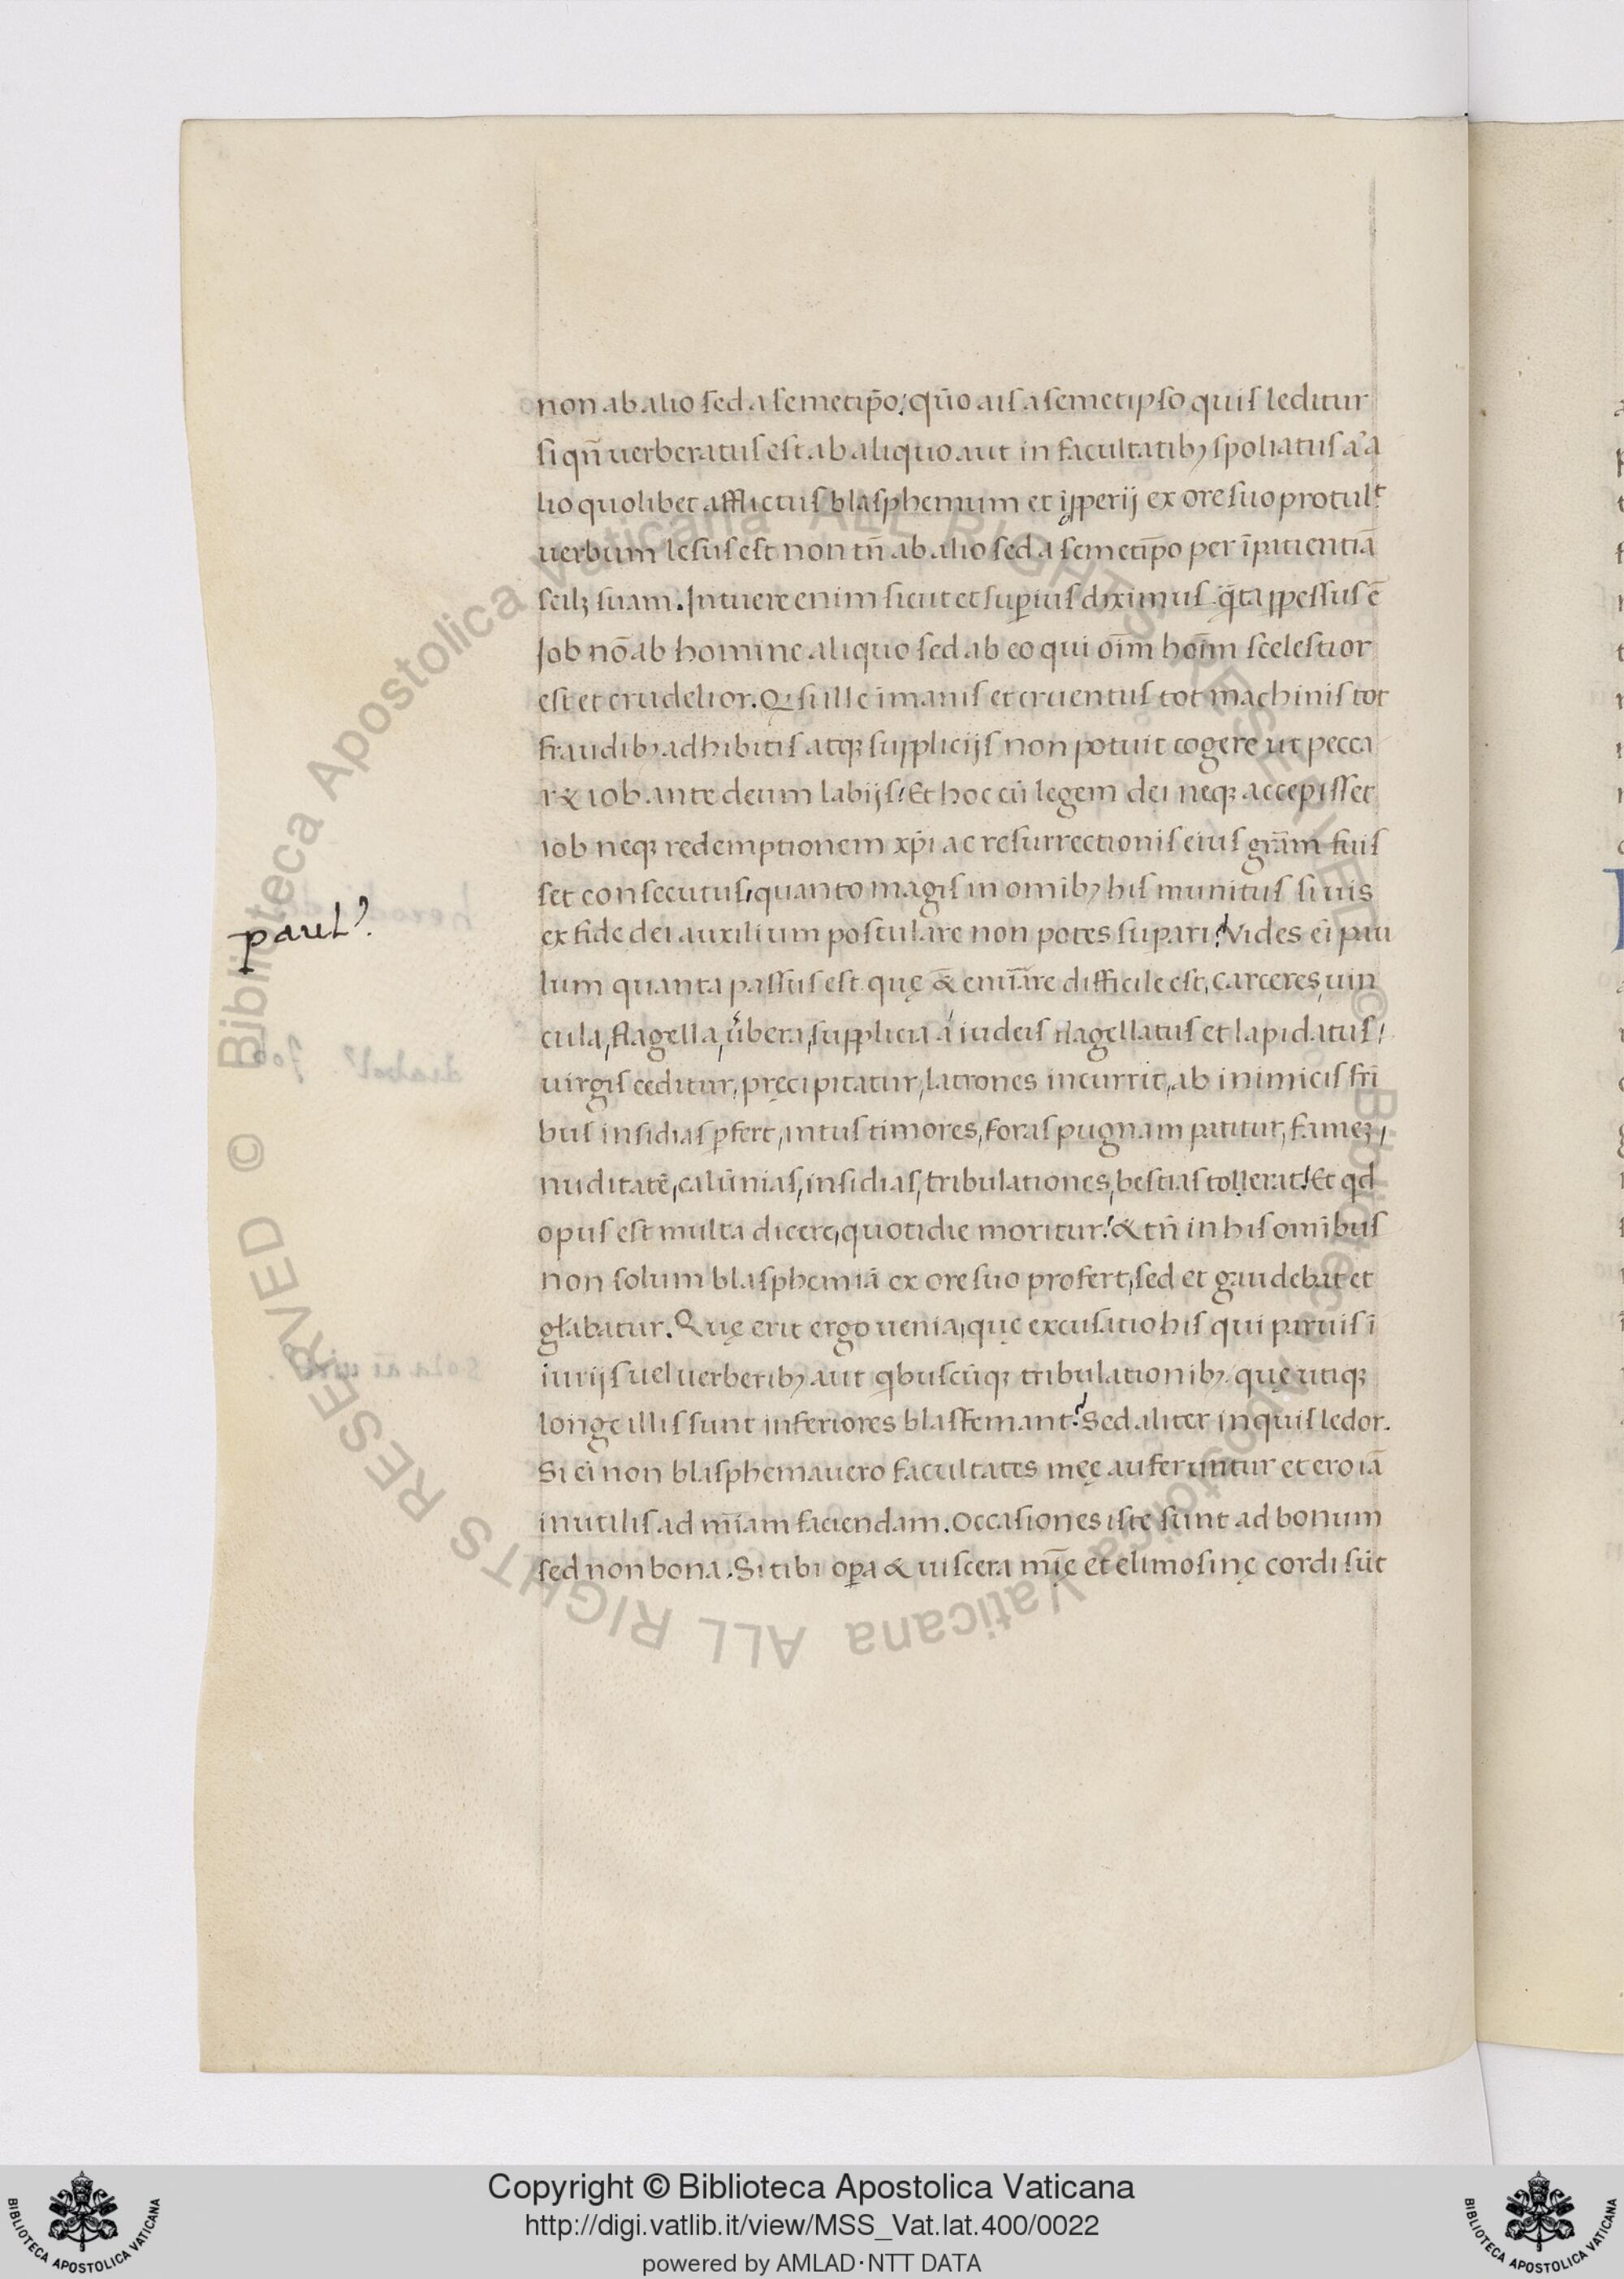 non ab alio sed a semetip̄o: qūo ais a semetipso quis leditur
si qn̄ uerberatus est ab aliquo aut in facultatibꝫ spoliatus a' a
lio quolibet afflictus blasphemum et īpperij ex ore suo protulͭ
uerbum lesus est non tn̄ ab alio sed a semetip̄o per īpatientiā
scilꝫ suam. Intuere enim sicut et supius diximus q̄ta ꝑpessus ē
Iob nō ab homine aliquo sed ab eo qui oīm hoīm scelestior
est et crudelior. Q, si ille īmanis et cruentus tot machinis tot
fraudibꝫ adhibitis atqꝫ supplicijs non potuit cogere ut pecca
r& iob ante deum labijs: Et hoc cū legem dei neqꝫ accepisset
iob neqꝫ redemptionem xp̄i ac resurrectionis eius grām fuis
set consecutus, quanto magis in omībꝫ his munitus si uis
paulꝰ.
ex fide dei auxilium postulare non potes supari? Vides ei pau
lum quanta passus est quę & enūāre difficile est, carceres, uin
cula, flagella, u̓bera, supplicia a iudeis flagellatus et lapidatus,
uirgis ceditur, pręcipitatur, latrones incurrit, ab inimicis frī
bus insidias ꝑfert, intus timores, foras pugnam patitur, fameꝫ,
nuditatē, calūnias, insidias, tribulationes, bestias tollerat! Et qd
opus est multa dicere, quotidie moritur! & tn̄ in his omībus
non solum blasphemiā ex ore suo profert, sed et gaudebat et
głabatur. Quę erit ergo uenia, quę excusatio his qui paruis ī
iurijs uel uerberibꝫ aut qbuscūqꝫ tribulationibꝫ quę utiqꝫ
longe illis sunt inferiores blasfemant? Sed aliter inquis ledor.
Si ei non blasphemauero facultates męę auferuntur et ero iā
inutilis ad mīam faciendam. Occasiones iste sunt ad bonum
sed non bona. Si tibi opa & uiscera mīę et elimosinę cordi sūt
Biblioteca Apostolica Vaticana ALL RIGHTS RESERVED ©
Biblioteca Apostolica Vaticana ALL RIGHTS RESERVED ©
Copyright © Biblioteca Apostolica Vaticana
http://digi.vatlib.it/view/MSS_Vat.lat.400/0022
powered by AMLAD·NTT DATA
BIBLIOTECA APOSTOLICA VATICANA
BIBLIOTECA APOSTOLICA VATICANA